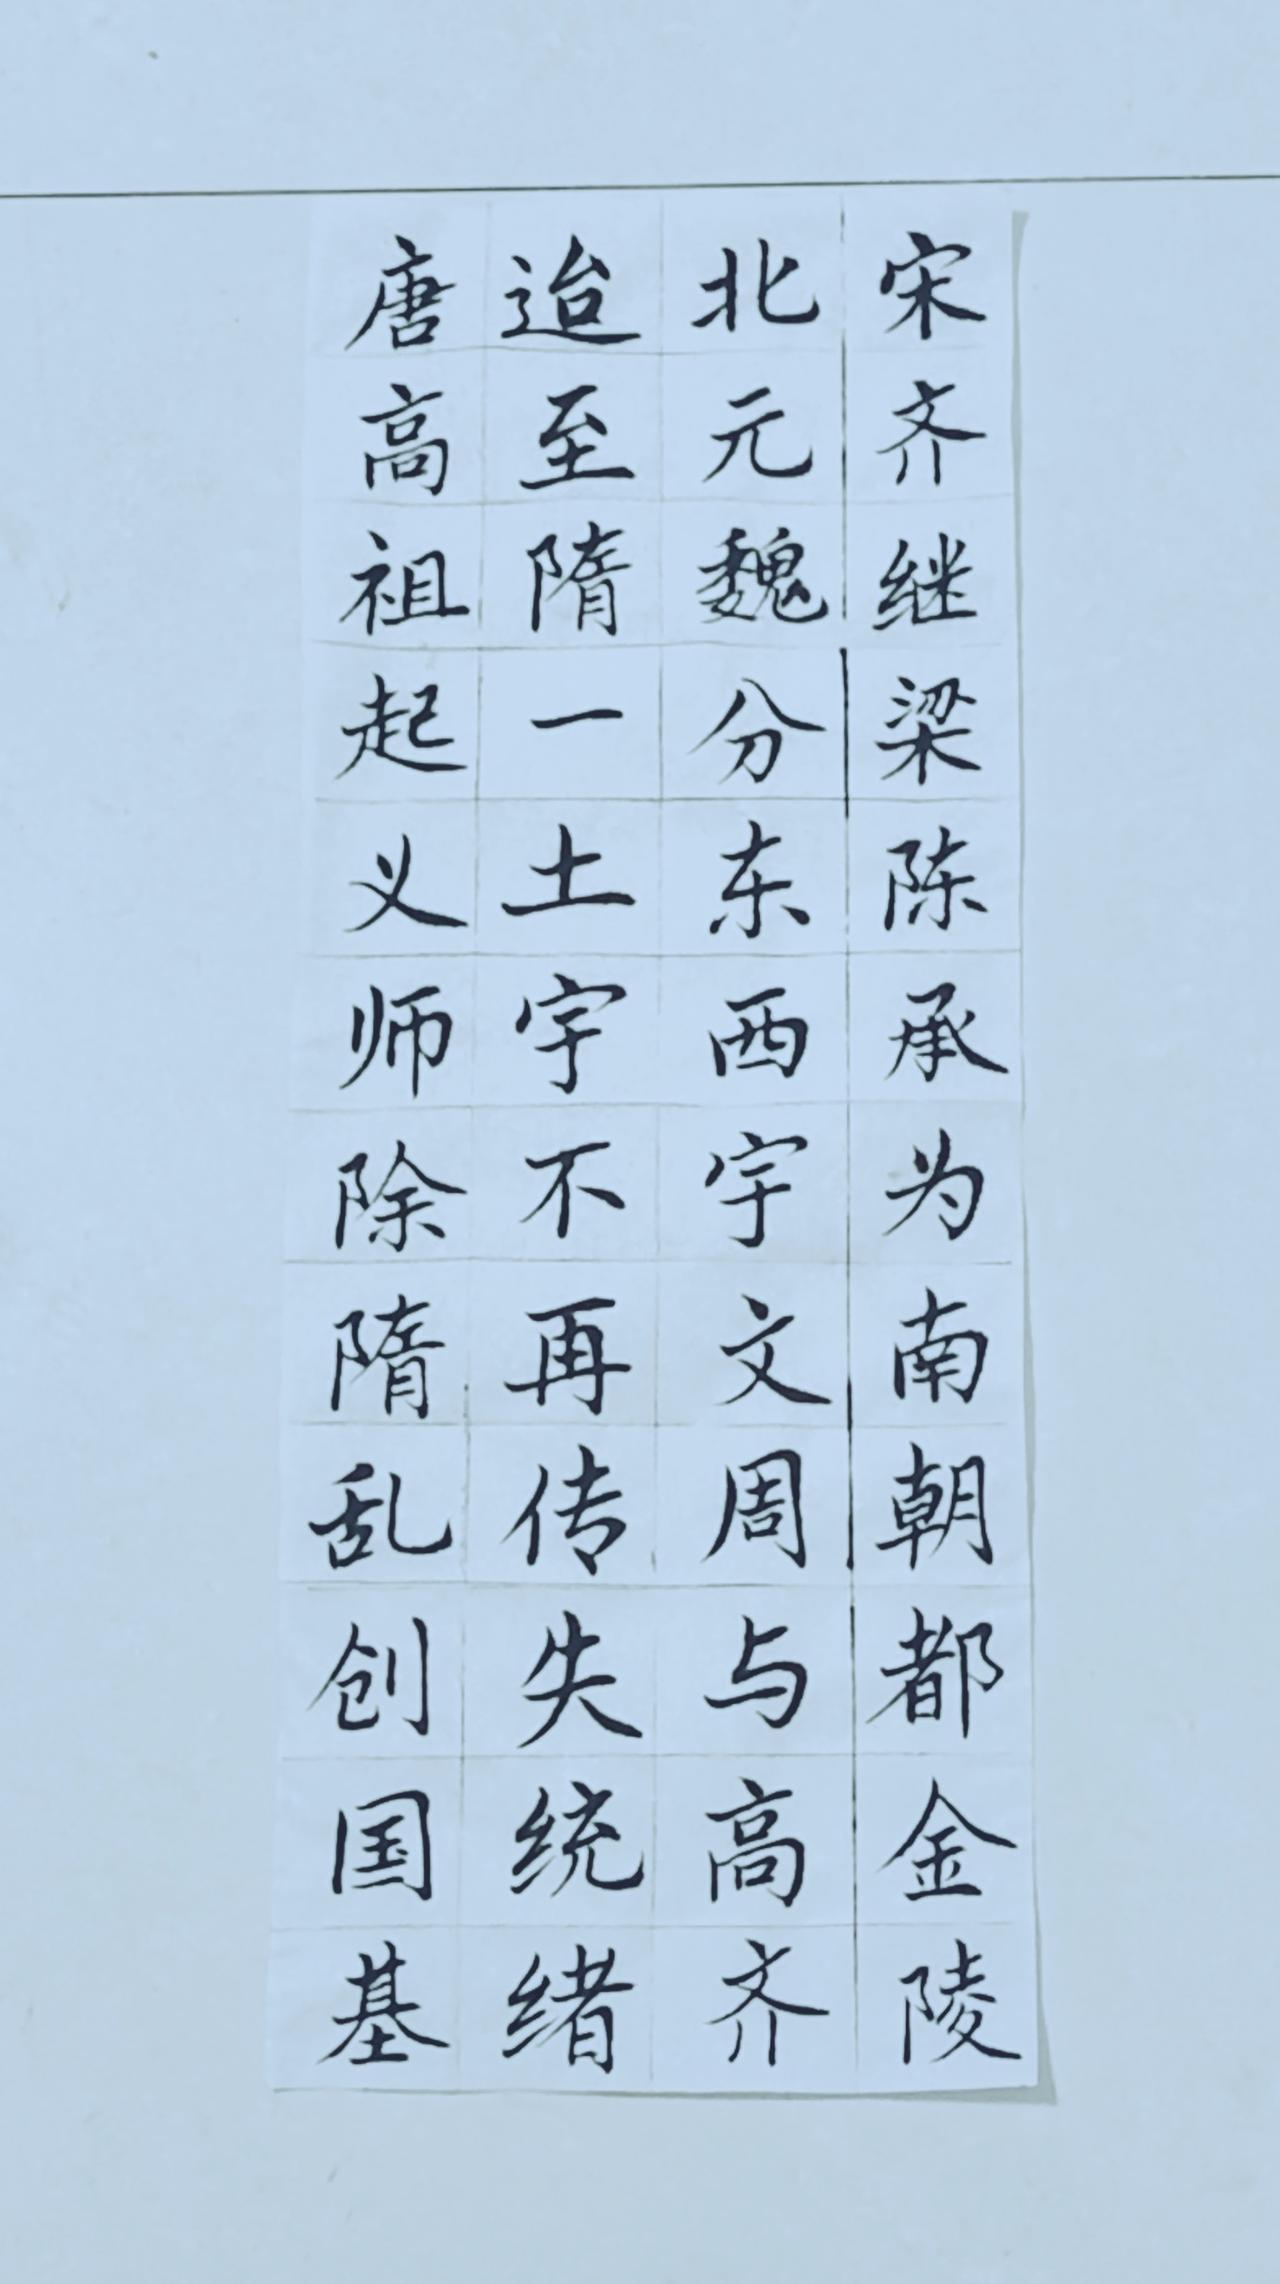 宋齐继梁陈承为南朝都金陵
北元魏分东西宇文周与高齐
迨至隋一土宇不再传失统绪
唐高祖起义师除隋乱创国基